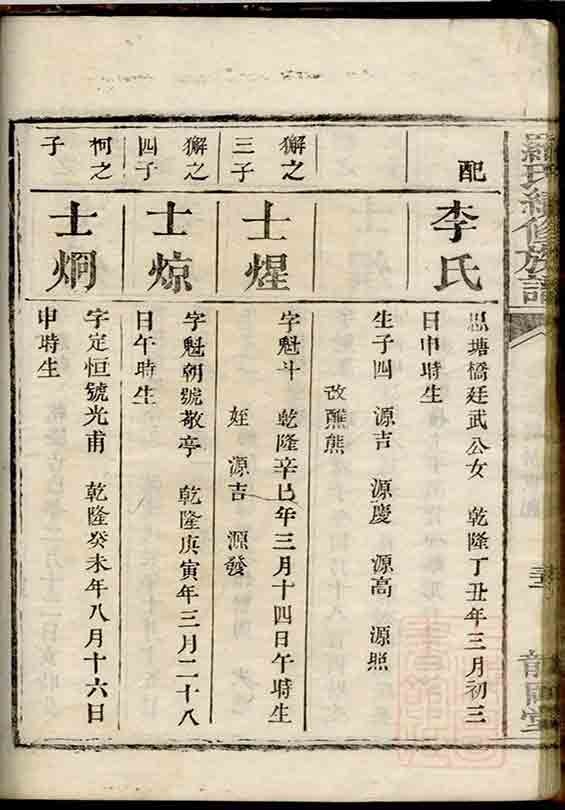 羅氏續修族譜
配
李氏
思塘橋廷武公女 乾隆丁丑年三月初三
日申時生
生子四 源吉 源慶 源高 源照
改醮熊
獬之
三子
士煋
字魁斗 乾隆辛巳年三月十四日午時生
姪 源吉 源發
獬之
四子
士惊
字魁朝號敬亭 乾隆庚寅年三月二十八
日午時生
柯之
子
士炯
字定恒號光甫 乾隆癸未年八月十六日
申時生